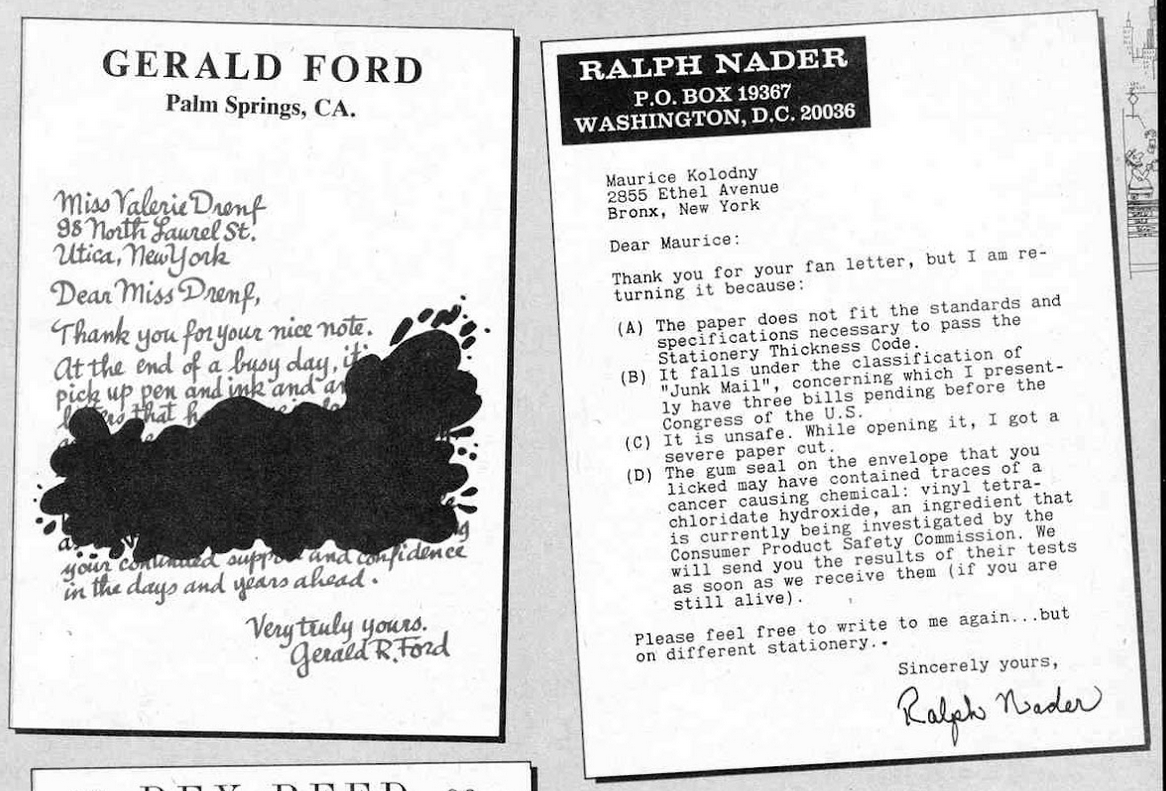 GERALD FORD
Palm Springs, CA.
Miss Valerie Drenf
98 North Laurel St.
Utica, New York
Dear Miss Drenf,
Thank you for your nice note.
At the end of a busy day, it
pick up pen and ink and
that
your continued support and confidence
in the days and years ahead.
Very truly yours.
Gerald R. Ford
RALPH NADER
P.O. BOX 19367
WASHINGTON, D.C. 20036
Maurice Kolodny
2855 Ethel Avenue
Bronx, New York
Dear Maurice:
Thank you for your fan letter, but I am re-
turning it because:
(A) The paper does not fit the standards and
specifications necessary to pass the
Stationery Thickness Code.
(B) It falls under the classification of
"Junk Mail", concerning which I present-
ly have three bills pending before the
Congress of the U.S.
(C) It is unsafe. While opening it, I got a
severe paper cut.
(D) The gum seal on the envelope that you
licked may have contained traces of a
cancer causing chemical: vinyl tetra-
chloridate hydroxide, an ingredient that
is currently being investigated by the
Consumer Product Safety Commission. We
will send you the results of their tests
as soon as we receive them (if you are
still alive).
Please feel free to write to me again...but
on different stationery..
Sincerely yours,
Ralph Nader
REX REED